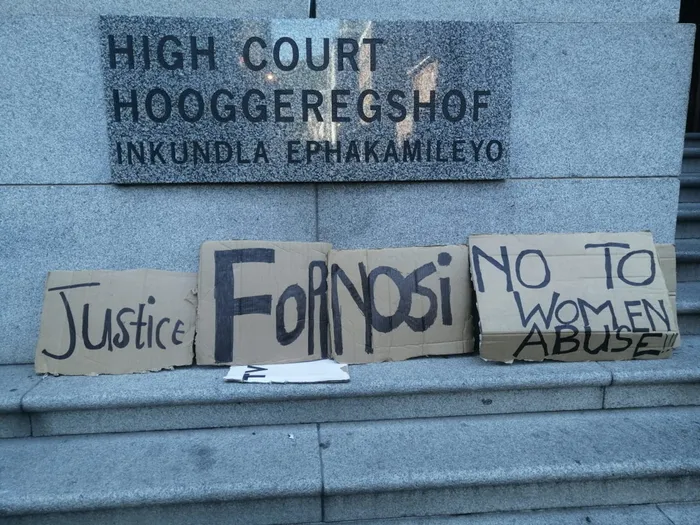 HIGH COURT
HOOGGEREGSHOF
INKUNDLA EPHAKAMILEYO
Justice For Nosi
NO TO
WOMEN
ABUSE!!!
TV